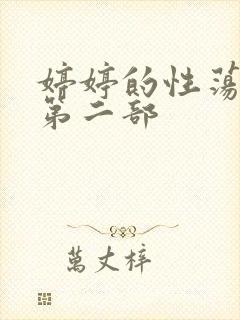 婷婷的性荡
第二部
萬丈梓